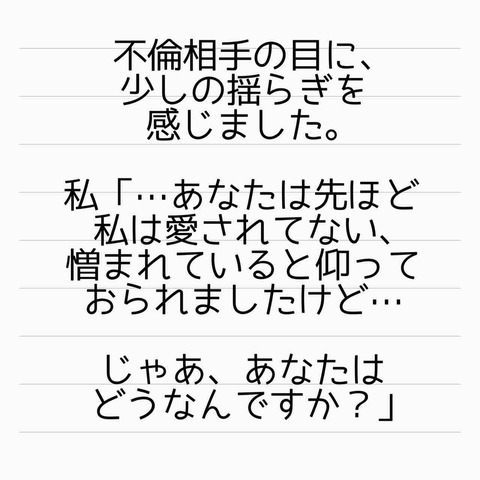 不倫相手の目に、
少しの揺らぎを
感じました。
私「…あなたは先ほど
私は愛されてない、
憎まれていると仰って
おられましたけど…
じゃあ、あなたは
どうなんですか？」